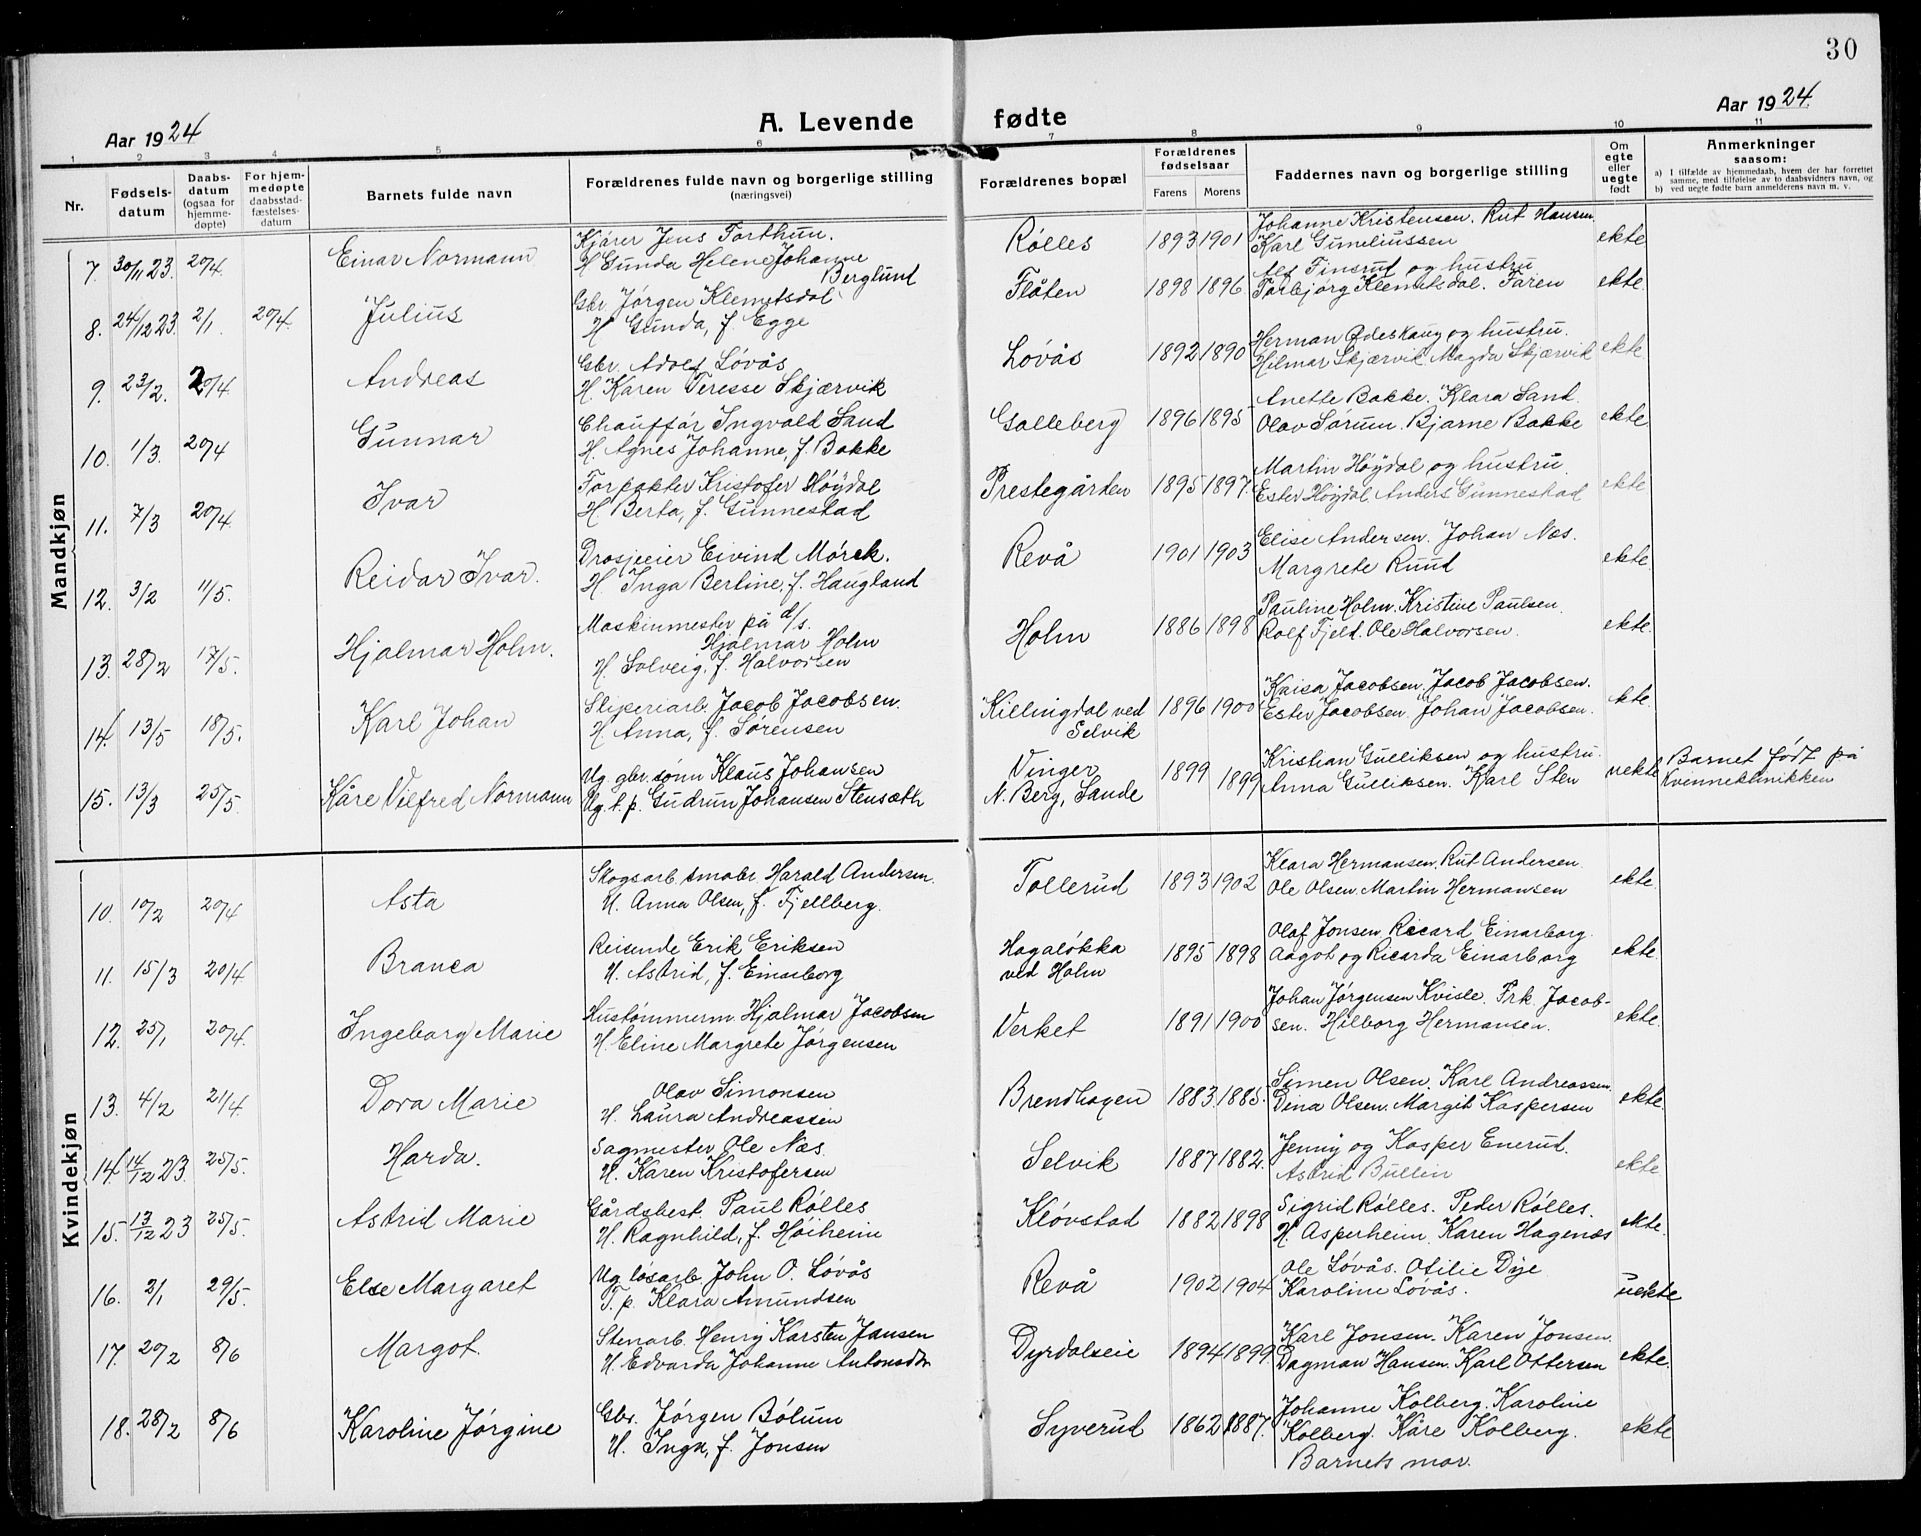 30
Aar 1924
A. Levende fødte
Aar 1924.
1 2 3 4 5 6 7 8 9 10 11
Nr.
Fødsels-
datum
Daabs-
datum
(ogsaa for
hjemme-
døpte)
For hjem-
medøpte
daabsstad-
fæstelses-
datum
Barnets fulde navn
Forældrenes fulde navn og borgerlige stilling
(næringsvei)
Forældrenes bopæl
Forældrenes
fødselsaar
Farens Morens
Faddernes navn og borgerlige stilling
Om
egte
eller
uegte
født
Anmerkninger
saasom:
a) I tilfælde av hjemmedaab, hvem der har forrettet
samme, med tilføielse av to daabsvidners navn, og
b) ved uegte fødte barn anmelderens navn m. v.
Mandkjøn
7. 30/11 23. 20/4. Einar Normann
Kjører Jens Forthun.
H. Gunda Helene Johanne
Berglund
Rølles 1893 1901
Johanne Kristensen. Rut Hansen.
Karl Guneliussen
ekte
8. 24/12 23. 2/1. 20/4. Julius
Gbr. Jørgen Klemetsdal
H. Gunda, f. Egge
Flåten 1898 1896
Alf Finsrud og hustru
Torbjørg Klemetsdal. Faren
ekte.
9. 23/2. 20/4. Andreas
Gbr. Adolf Løvås
H. Karen Teresse Skjærvik
Løvås 1892 1890
Herman Ødeskaug og hustru.
Hilmar Skjærvik Magda Skjærvik
ekte.
10. 1/3. 20/4 Gunnar
Chauffør Ingvald Sand
H. Agnes Johanne, f. Bakke
Galleberg 1896 1895
Anette Bakke. Klara Sand.
Olav Sørum. Bjarne Bakke
ekte
11. 7/3 20/4. Ivar
Forpakter Kristofer Høydal
H. Berta, f. Gunnestad
Prestegården 1895 1897.
Martin Høydal og hustru.
Ester Høydal Anders Gunnestad
ekte
12. 3/2 11/5. Reidar Ivar.
Drosjeeier Eivind Mørck.
H. Inga Berline, f. Haugland
Revå 1901 1903
Elise Andersen. Johan Næs.
Margrete Ruud
ekte.
13. 28/2 17/5. Hjalmar Holm.
Maskinmester på d/s.
Hjalmar Holm
H. Solveig. f. Halvorsen
Holm 1886 1898
Pauline Holm. Kristine Paulsen.
Rolf Fjeld. Ole Halvorsen.
ekte.
14. 13/5 18/5. Karl Johan
Sliperiarb. Jacob Jacobsen.
H. Anna, f. Sørensen
Killingdal ved
Selvik
1896 1900
Kaisa Jacobsen. Jacob Jacobsen.
Ester Jacobsen Johan Jacobsen.
ekte.
15. 13/3 25/5. Kåre Vilfred Normann
Ug. gbr.sønn Klaus Johansen
Ug. t.p. Gudrun Johansen Stensæth
Vinger
N. Berg, Sande
1899 1899
Kristian Gulliksen og hustru.
Anna Gulliksen. Karl Sten
uekte
Barnet født på
Kvinneklinikken
Kvindekjøn
10. 10/2 20/4 Asta
Skogsarb. smabr. Harald Andersen.
H. Anna Olsen, f. Fjellberg.
Tollerud 1893 1902
Klara Hermansen. Rut Andersen
Ole Olsen. Martin Hermansen
ekte.
11. 15/3 20/4 Branca
Reisende Erik Eriksen
H. Astrid, f. Einarborg
Hagaløkka
ved Holm
1895 1898
Olaf Jonsen. Ricard Einarborg.
Aagot og Ricarda Einarborg
ekte.
12. 25/1 20/4. Ingeborg Marie
Hustømmerm. Hjalmar Jacobsen
H. Eline Margrete Jørgensen
Verket 1891 1900
Johan Jørgensen Kvisle. Frk. Jacob-
sen. Hilborg Hermansen.
ekte.
13. 4/2 21/4 Dora Marie
Olav Simonsen
H. Laura Andreassen
Brendhagen 1883 1885.
Simen Olsen. Karl Andreassen.
Dina Olsen. Margit Kaspersen
ekte.
14. 14/12 23. 25/5. Harda.
Sagmester Ole Næs.
H. Karen Kristofersen
Selvik 1887 1882.
Jenny og Kasper Enerud.
Astrid Bullin
ekte
15. 13/12 23 25/5. Astrid Marie
Gårdsbest. Paul Rølles
H. Ragnhild, f. Høiheim
Kløvstad 1882 1898
Sigrid Rølles. Peder Rølles.
H. Asperheim. Karen Hagenæs
ekte.
16. 2/1 29/5. Else Margaret
Ug. løsarb. John O. Løvås
T.p. Klara Amundsen
Revå 1902 1904
Ole Løvås. Otilie Dye
Karoline Løvås.
uekte
17. 20/2 8/6 Margot.
Stenarb. Henry Karsten Jansen
H. Edvarda Johanne Antonsdtr
Dyrdalseie 1894 1899.
Karl Jonsen. Karen Jonsen.
Dagmar Hansen. Karl Ottersen
ekte.
18. 28/2 8/6 Karoline Jørgine
Gbr. Jørgen Bølum
H. Inga, f. Jonsen
Syverud 1862 1887.
Johanne Kolberg. Karoline
Kolberg. Kåre Kolberg.
Barnets mor.
ekte